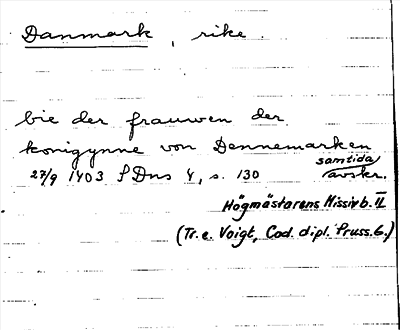 Danmark, rike.
bie der frauwen der
konigynne von Dennemarken
samtida
27/9 1403 SDns 4, s. 130 avskr.
Högmästarens Missivb. II
(Tr. e. Voigt, Cod. dipl. Pruss. 6.)